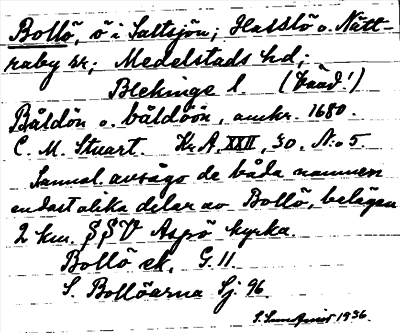 Bollö, ö i Saltsjön; Hasslö o. Nätt-
raby sr; Medelstads hd;
Blekinge l. (bååd!)
Båldön o. båldöön, omkr. 1680.
C. M. Stuart. Kr.A. XXII, 30, N:o 5
Sannol. avsågo de båda namnen
endast olika delar av Bollö, belägen
2 km. SSV Aspö kyrka.
Bollö ek. G. 11.
S. Bollöarna Sj. 96.
1936.